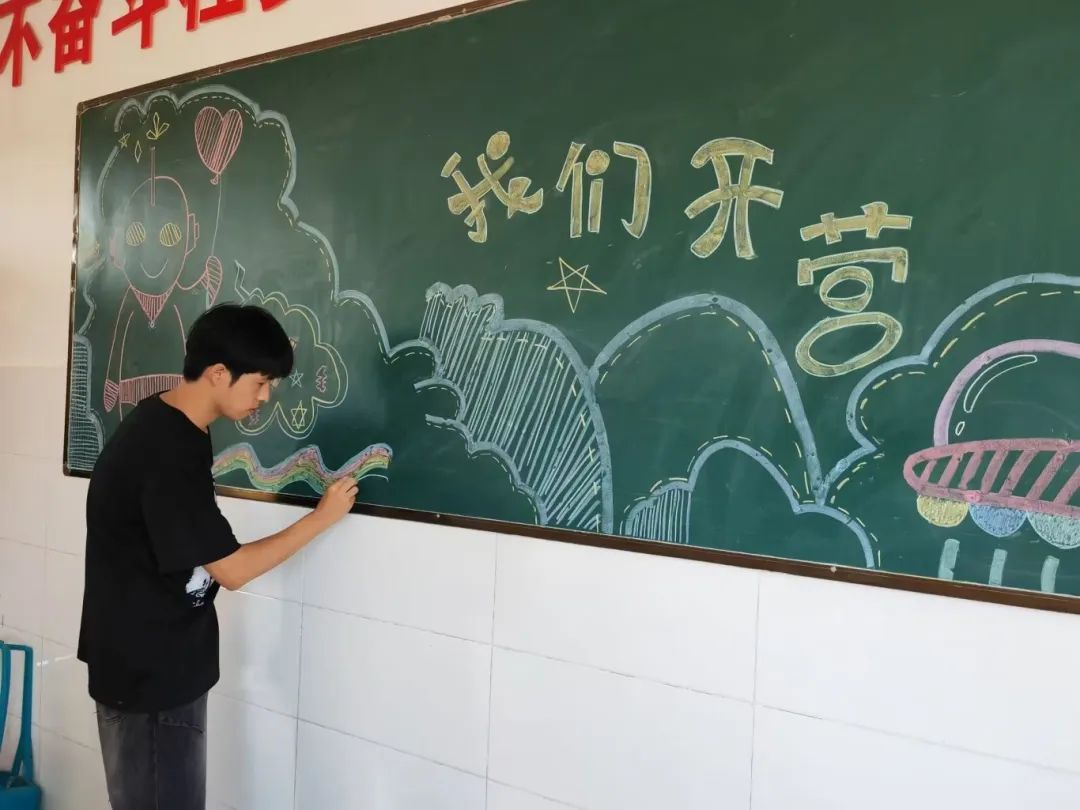 不奋斗
我们开营